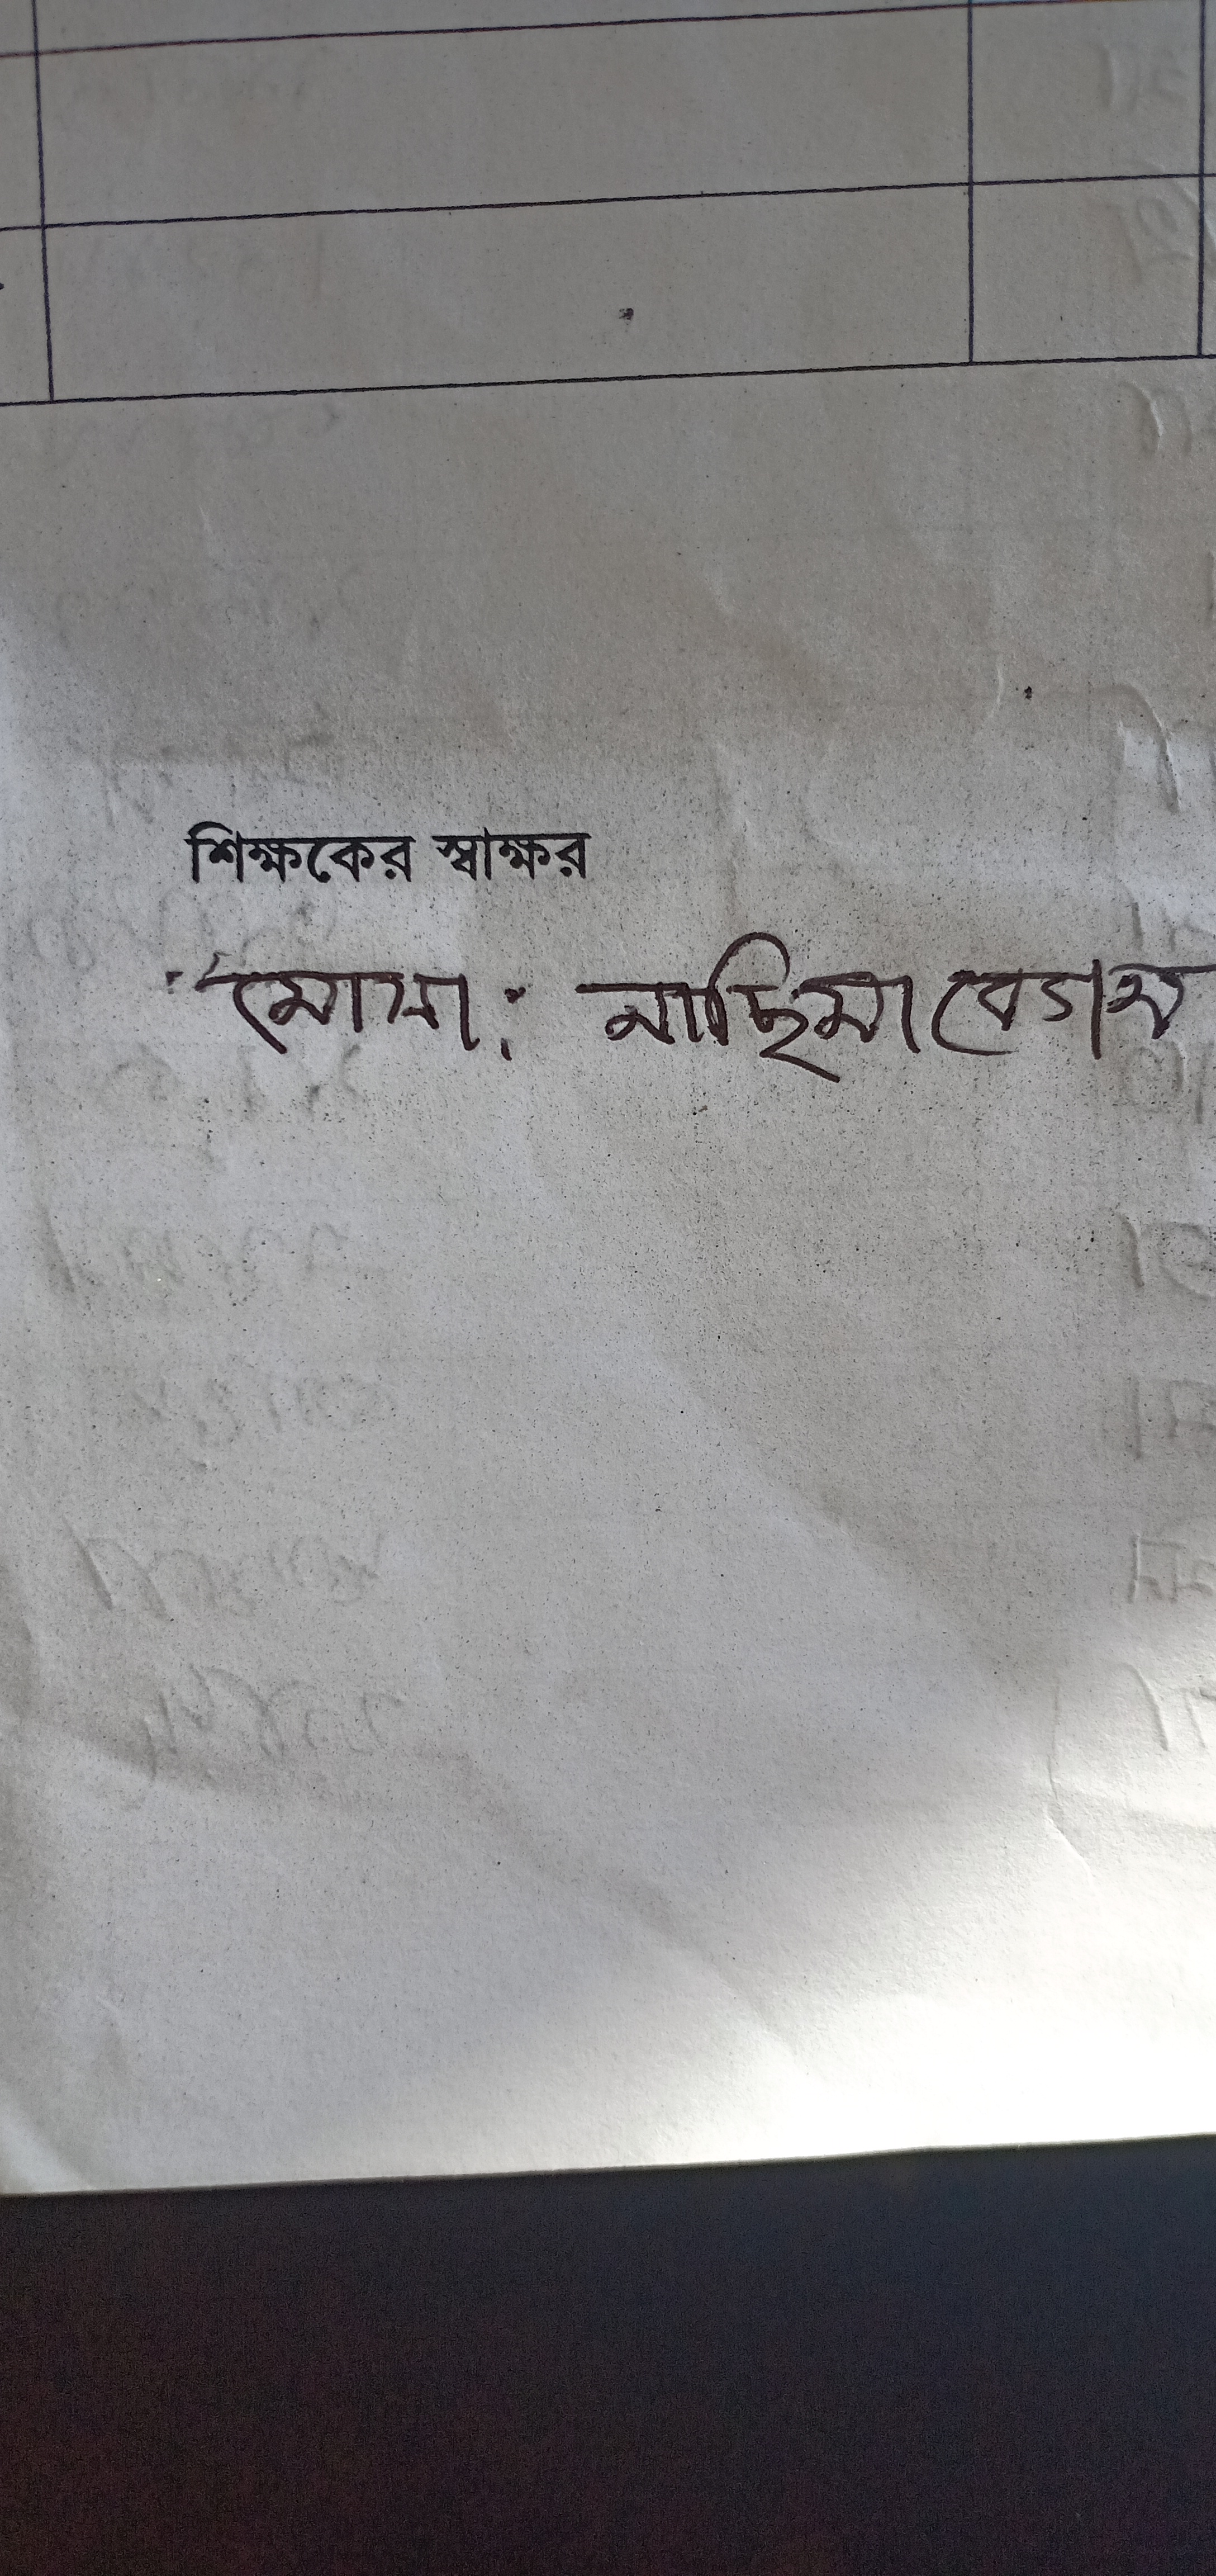 শিক্ষকের স্বাক্ষর
মোসা: নাছিমা বেগম